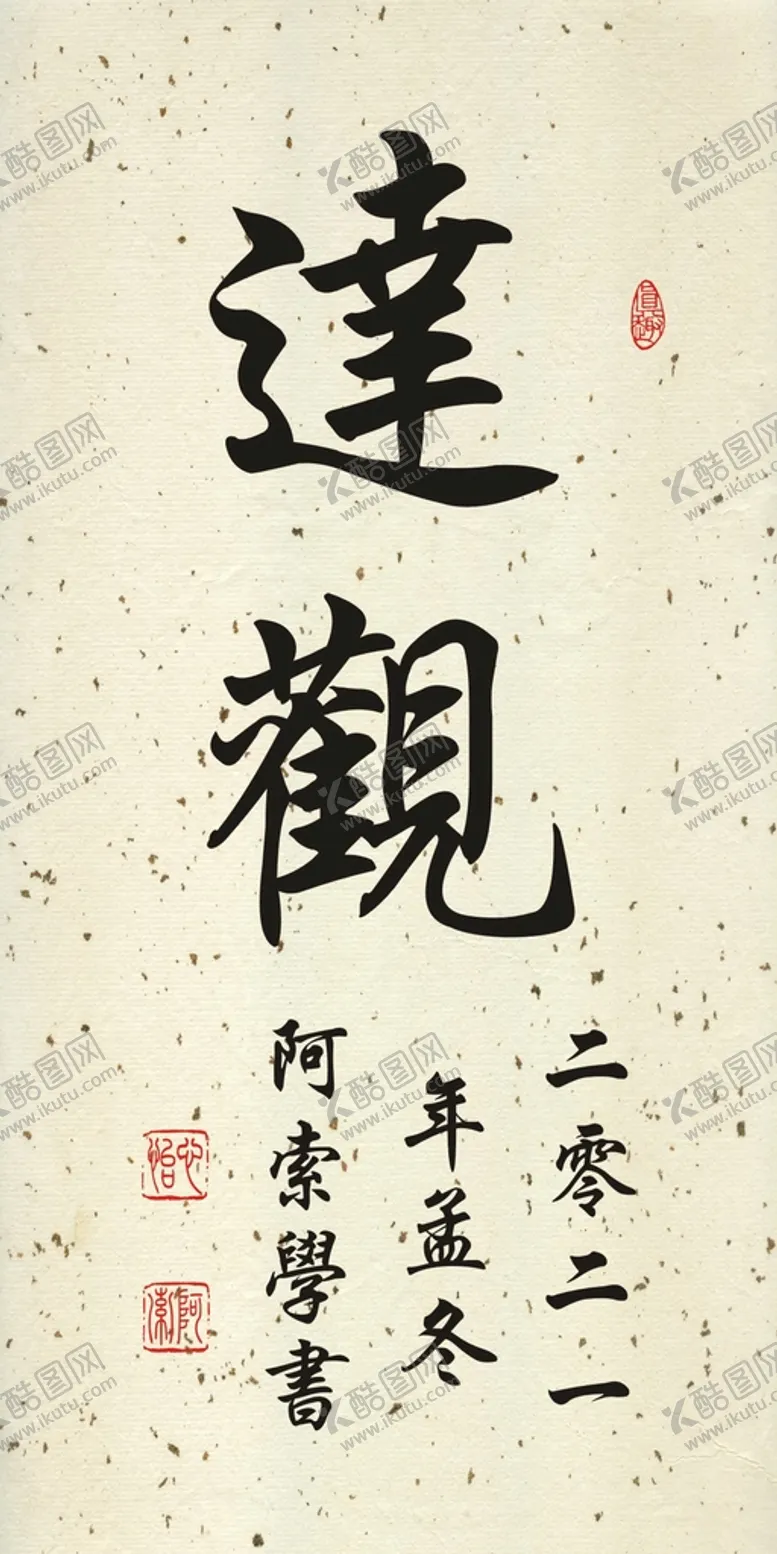 達觀
二零二一
年孟冬
阿索學書
心怡
阿索
酷图网
www.ikutu.com